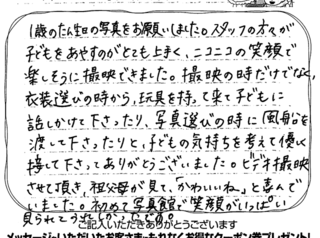 1歳のたん生日の写真をお願いしました。スタッフの方々が
子どもをあやすのがとても上手く、ニコニコの笑顔で
楽しそうに撮映できました。撮映の時だけでなく、
衣装選びの時から、玩具を持って来て子どもに
話しかけて下さったり、写真選びの時に風船を
渡して下さったりと、子どもの気持ちを考えて優しく
接して下さってありがとうございました。ビデオ撮映
させて頂き、祖父母が見て、「かわいいね」と喜んで
いました。初めて写真館で笑顔がいっぱい
見られてうれしかったです。
ご記入いただきありがとうございます
メッセージいただいたお客さまへもれなくお得なクーポン券プレゼント!